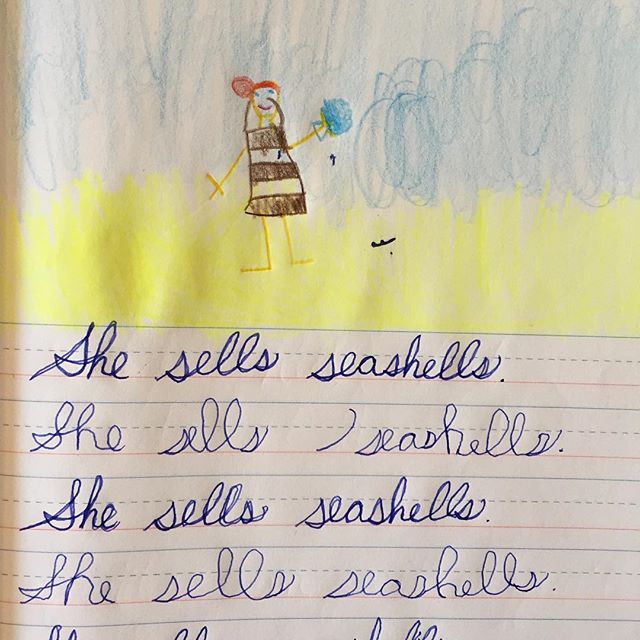 She sells seashells.
She sells seashells.
She sells seashells.
She sells seashells.